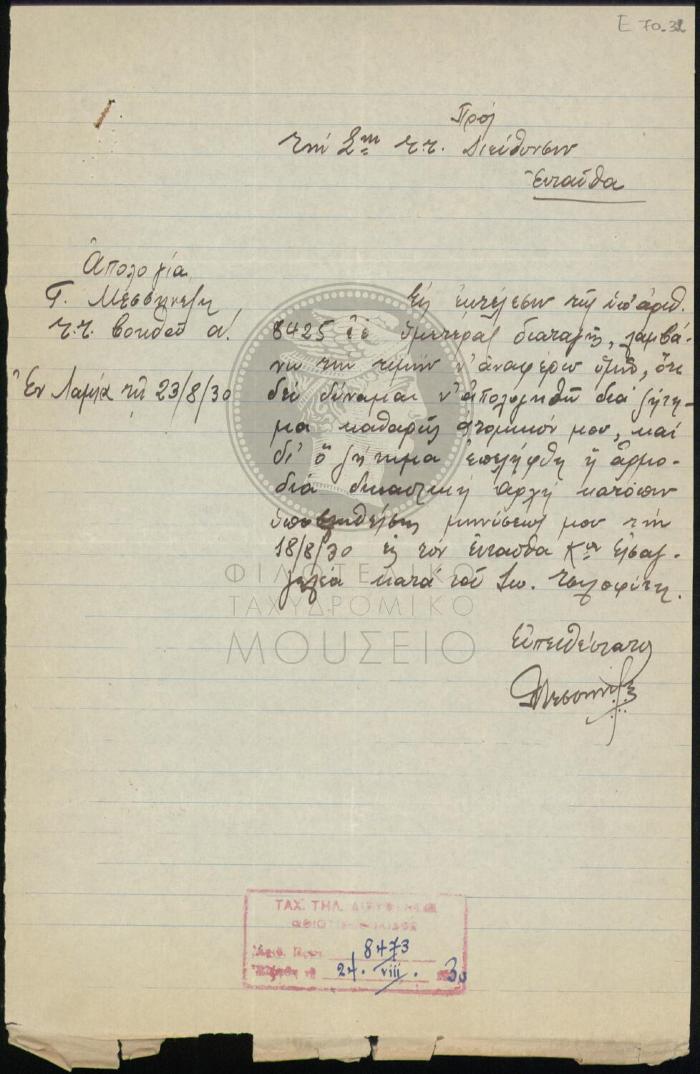 Ε 70.32
Πρὸς
τὴν 2αν τ.τ. Διεύθυνσιν
Ἐνταῦθα
Ἀπολογία
Γ. Μεσσηνέζη
τ.τ. βοηθοῦ α΄.
Ἐν Λαμίᾳ τῇ 23/8/30
Εἰς ἐκτέλεσιν τῆς ὑπ' ἀριθ.
8425 ἐ.ἔ. ὑμετέρας διαταγῆς, λαμβά-
νω τὴν τιμὴν ν' ἀναφέρω ὑμῖν, ὅτι
δὲν δύναμαι ν' ἀπολογηθῶ διὰ ζήτη-
μα καθαρῶς ἀτομικόν μου, καὶ
δι' ὃ ζήτημα ἐπελήφθη ἡ ἁρμο-
δία δικαστικὴ ἀρχὴ κατόπιν
ὑποβληθείσης μηνύσεώς μου τὴν
18/8/30 εἰς τὸν ἐνταῦθα κον Εἰσαγ-
γελέα κατὰ τοῦ
Εὐπειθέστατος
ΦΙΛΟΤΕΛΙΚΟ
ΤΑΧΥΔΡΟΜΙΚΟ
ΜΟΥΣΕΙΟ
ΤΑΧ. ΤΗΛ. ΔΙΕΥΘΥΝΣΙΣ
ΦΘΙΩΤΙΔΟΦΩΚΙΔΟΣ
Ἀριθ. Πρωτ. 8473
24. viii. 30